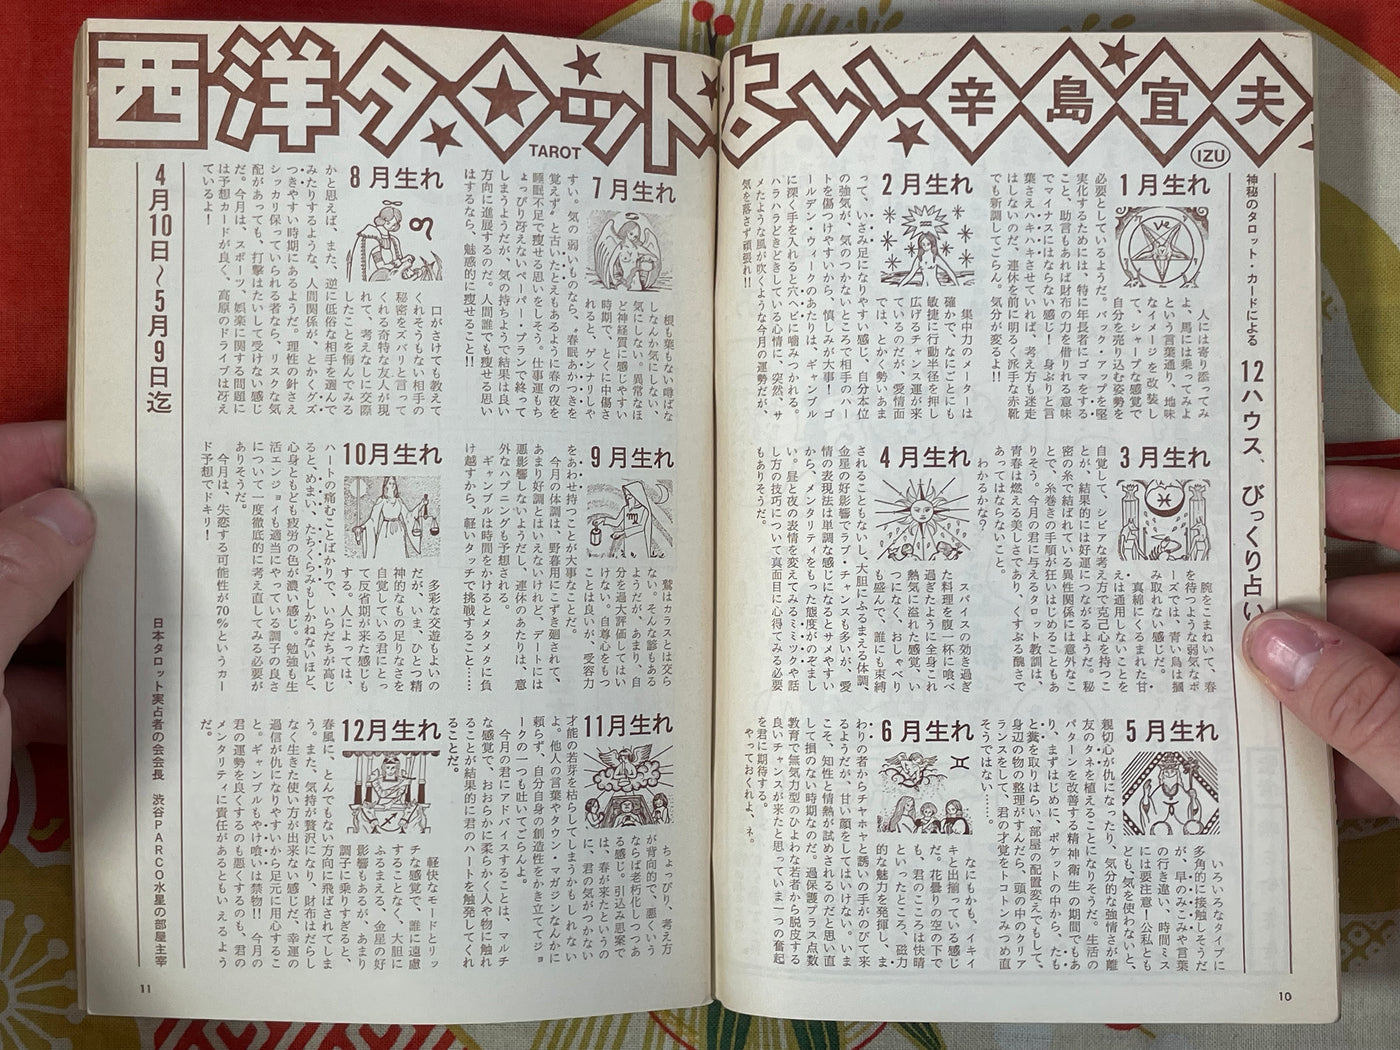 西洋タロット占い
TAROT
辛島宜夫
IZU
神秘のタロット・カードによる 12ハウス、びっくり占い
1月生れ
人には寄り添ってみ
よ、馬には乗ってみよ
という言葉通り、地味
なイメージを改装し
て、シャープな感覚で
自分を売り込む姿勢を
必要としているようだ。バック・アップを堅
実化するためには、特に年長者にゴマをする
こと、助言もあれば財布の力を借りれる意味
でマイナスにはならない感じ！身ぶりと言
葉さえハキハキさせていれば、考え方も迷走
はしないものだ、連休を前に明るく派手な赤靴
でも新調してごらん。気分が変るよ!!
2月生れ
集中力のメーターは
確かで、なにごとにも
敏捷に行動半径を押し
広げるチャンス運が来
ているのだが、愛情面
では、とかく勢いあま
って、いさみ足になりやすい感じ、自分本位
の強気が、気のつかないところで相手のハー
トを傷つけやすいから、慎しみが大事！ゴ
ールデン・ウィークのあたりは、ギャンブル
に深く手を入れると穴ヘビに噛みつかれる。
ハラハラどきどきしている心情に、突然、サ
メたような風が吹くような今月の運勢だが、
気を落さず頑張れ!!
3月生れ
腕をこまねいて、春
を待つような弱気なポ
ーズでは、青い鳥は摑
み取れない感じだ。
真綿にくるまれた甘
えは通用しないことを
自覚して、シビアな考え方で克己心を持つこ
とが、結果的には好運につながるようだ。秘
密の糸で結ばれている異性関係には意外なこ
とで、糸巻きの手順が狂いはじめることもあ
りそう。今月の君に与えるタロット教訓は、
青春は燃える美しさであり、くすぶる醜さで
あってはならないこと。
わかるかな？
4月生れ
スパイスの効き過ぎ
た料理を腹一杯に喰べ
過ぎたように全身これ
熱気に溢れた感覚、い
つになく、おしゃべり
も盛んで、誰にも束縛
されることもないし、大胆にふるまえる体調、
金星の好影響でラブ・チャンスも多いが、愛
情の表現法は単調な感じになるとサメやすい
から、メンタリティをもった態度がのぞまし
い。昼と夜の表情を変えてみるミミックや話
し方の技巧について真面目に心得てみる必要
もありそうだ。
5月生れ
いろいろなタイプに
多角的に接触しそうだ
が、早のみこみや言葉
の行き違い、時間ミス
には要注意！公私とも
ども、気を使わないと、
親切心が仇になったり、気分的な強情さが離
友のタネを植えることになりそうだ。生活の
パターンを改善する精神衛生の期間でもあ
り、まずはじめに、ポケットの中から、たも
と糞を取りはらい、部屋の配置変えでもして、
身辺の物の整理がすんだら、頭の中のクリア
ランスをして、君の才覚をトコトンみつめ直
そうではない……。
6月生れ
なににもかも、イキイ
キと出揃っている感じ
だ。花曇りの空の下で
も、君のこころは快晴
といったところ、磁力
的な魅力を発揮し、ま
わりの者からチャホヤと誘いの手がのびて来
るようだが、甘い顔をしてはいけない。いま
こそ、知性と情熱が試めされるのだと思い直
して損のない時期なのだ。過保護プラス点数
教育で無気力型のひよわな若者から脱皮する
良いチャンスが来たと思っていま一つの奮起
を君に期待する。
やっておくれよ、ネ。
10
7月生れ
根も葉もない噂ばな
しなんか気にしない、
気にしない。異常なほ
ど神経質に感じやすい
時期で、とくに中傷さ
れると、ゲンナリしや
すい。気の弱いものなら、“春眠あかつきを
覚えず”と古いたとえもあるように春の夜を
睡眠不足で瘦せる思いをしそう。仕事運もち
ょっぴり冴えないペーパー・プランで終って
しまうようだが、気の持ちようで結果は良い
方向に進展するのだ。人間誰でも瘦せる思い
はするなら、魅惑的に瘦せること!!
8月生れ
口がさけても教えて
くれそうもない相手の
秘密をズバリと言って
くれる奇特な友人が現
れて、考えなしに交際
したことを悔んでみる
かと思えば、また、逆に低俗な相手を選んで
みたりするような、人間関係が、とかくグズ
つきやすい時期にあるようだ。理性の針さえ
シッカリ保っていられる者なら、リスクな気
配があっても、打撃はたいして受けない感じ
だ。今月は、スポーツ、娯楽に関する問題に
は予想カードが良く、高原のドライブは冴え
ているよ！
9月生れ
鷲はカラスとは交ら
ない。そんな諺もある
ようだが、あまり、自
分を過大評価してはい
けない。自尊心をもつ
ことは良いが、受容力
をあわせ持つことが大事なことだ。
今月の体調は、野暮用にこずき廻されて、
あまり好調とはいえないけれど、デートには
悪影響しないようだし、連休のあたりは、意
外なハプニングも予想される。
ギャンブルは時間をかけるとメタメタに負
け越すから、軽いタッチで挑戦すること……
10月生れ
多彩な交遊もよいの
だが、いま、ひとつ精
神的なもの足りなさを
自覚している君にとっ
て反省期が来た感じも
する。人によっては、
ハートの痛むことばかりで、いらだちが高じ
ると、めまい、たちくらみもしかねないほど、
心身ともども疲労の色が濃い感じ。勉強も生
活エンジョイも適当にやっている調子の良さ
について一度徹底的に考え直してみる必要が
ありそうだ。
今月は、失恋する可能性が70％というカー
ド予想でドキリ！
11月生れ
ちょっぴり、考え方
が背向的で、悪くいう
ならば老朽化しつつあ
る感じ。引込み思案で
は、春が来たというの
に、君の気がつかない
才能の若芽を枯らしてしまうかもしれない
よ。他人の言葉やタウン・マガジンなんかに
頼らず、自分自身の創造性をかき立ててジョ
ークの一つも吐いてごらんよ。
今月の君にアドバイスすることは、マルチ
な感覚で、おおらかに柔らかく人や物に触れ
ることが結果的に君のハートを触発してくれ
ることだ。
12月生れ
軽快なモードとリッ
チな感覚で、誰に遠慮
することなく、大胆に
ふるまえる、金星の好
影響もあるが、あまり
調子に乗りすぎると、
春風に、とんでもない方向に飛ばされてしま
う。また、気持が贅沢になり、財布はだらし
なく生きた使い方が出来ない感じだ、幸運の
過信が仇になりやすいから足元に用心するこ
と。ギャンブルもやけ喰いは禁物!!今月の
君の運勢を良くするのも悪くするのも、君の
メンタリティに責任があるともいえるよう
だ。
4月10日〜5月9日迄
日本タロット実占者の会会長 渋谷PARCO水星の部屋主宰
11